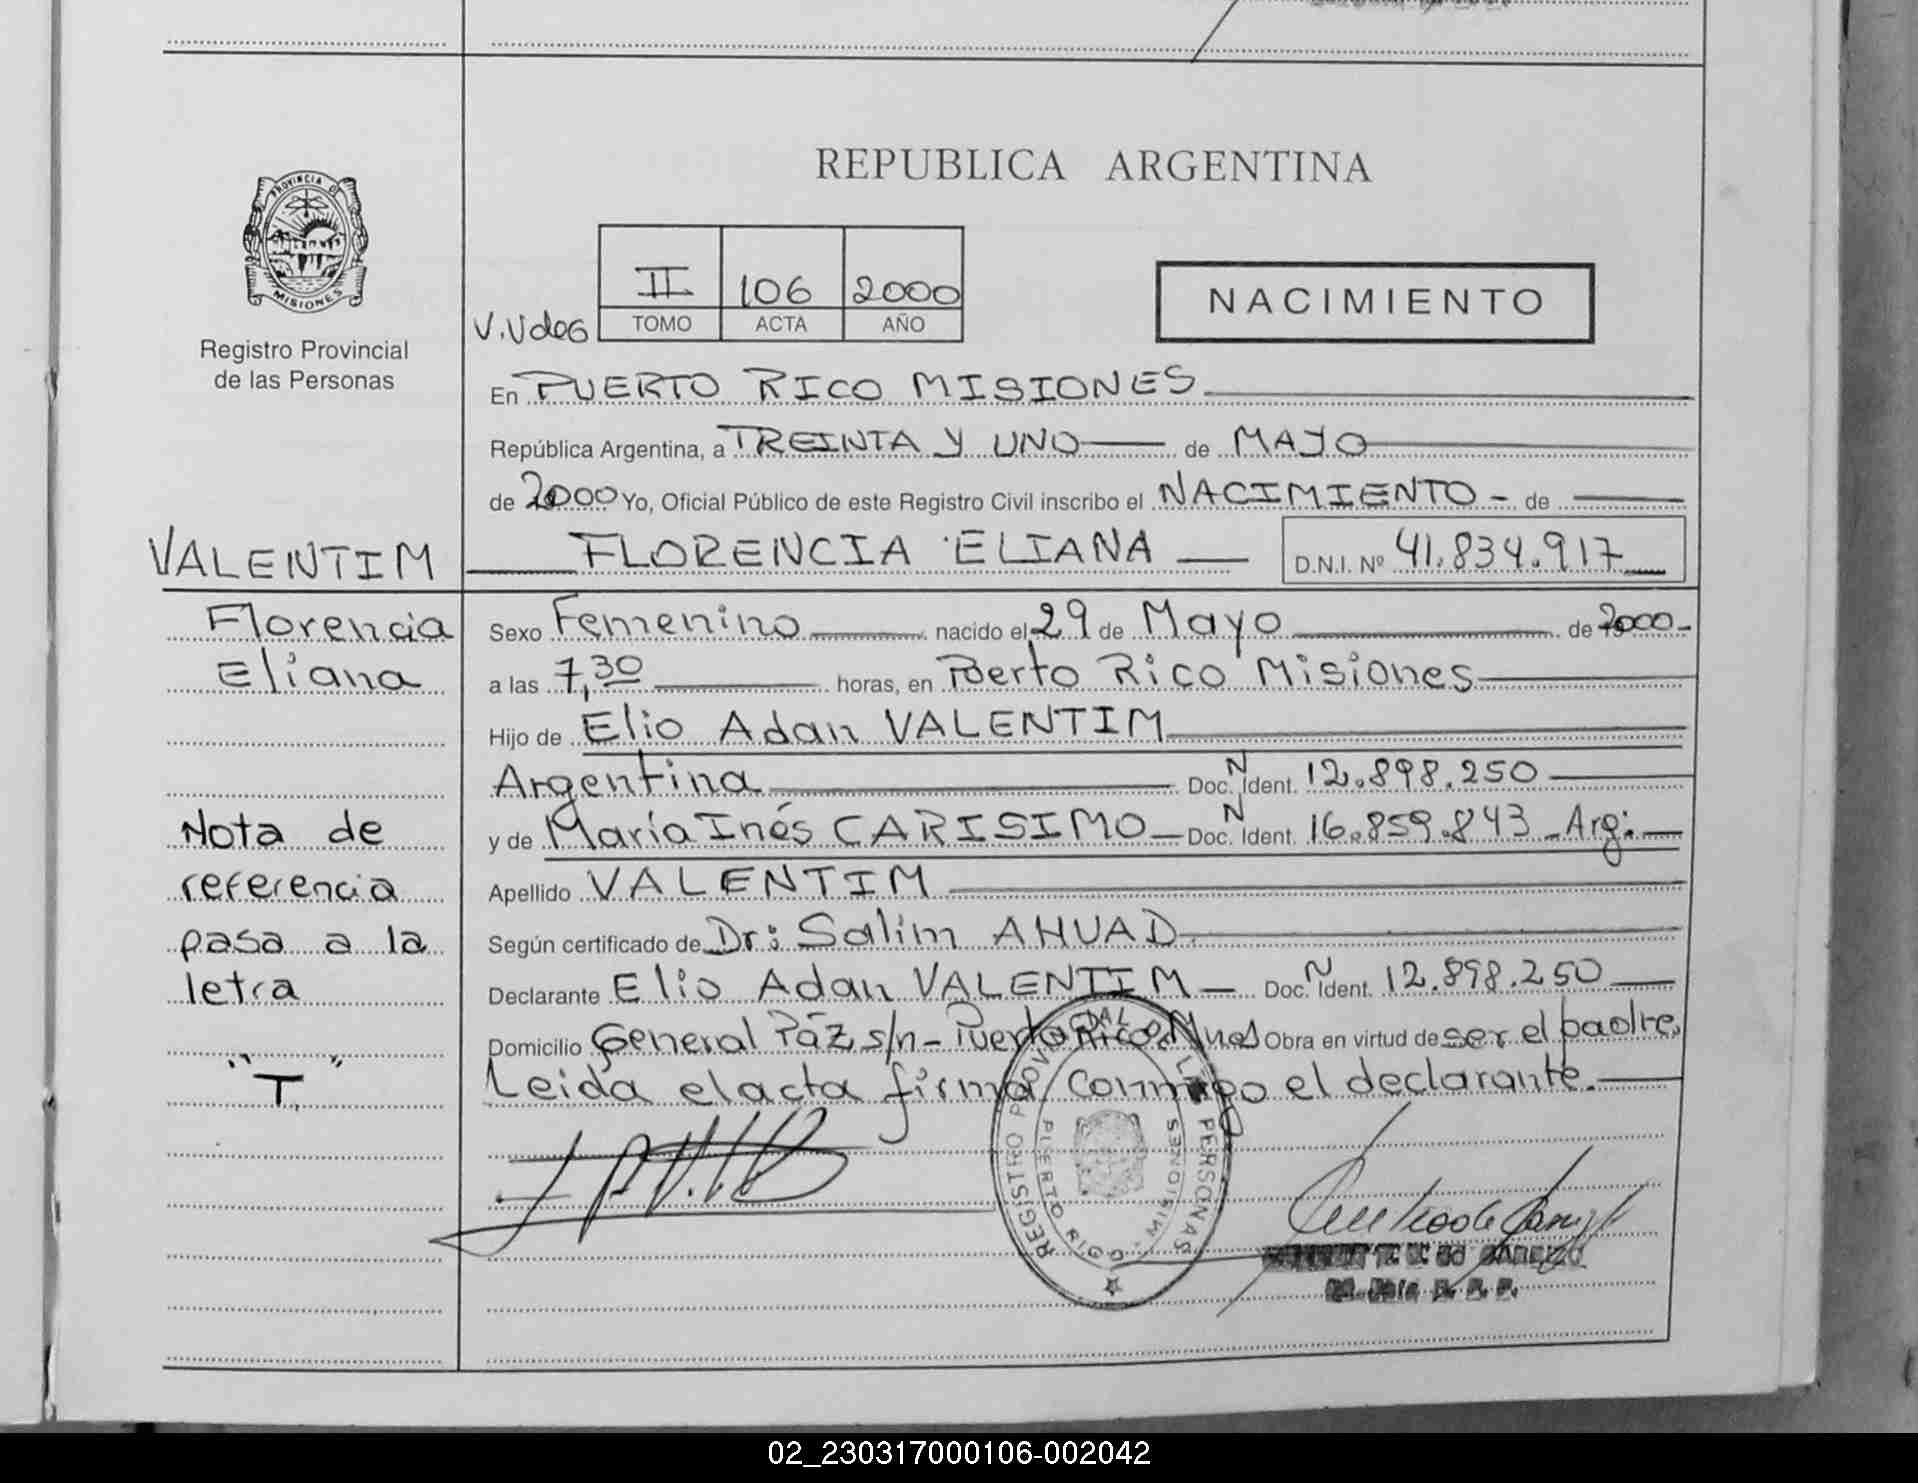 REPUBLICA ARGENTINA
PROVINCIA DE
MISIONES
Registro Provincial
de las Personas
II 106 2000
V. Vdes TOMO ACTA AÑO
NACIMIENTO
En PUERTO RICO MISIONES
República Argentina, a TREINTA Y UNO de MAYO
de 2000 Yo, Oficial Público de este Registro Civil inscribo el NACIMIENTO - de
FLORENCIA ELIANA D.N.I. Nº 41.834.917
VALENTIM
Florencia
Eliana
Nota de
referencia
pasa a la
letra
"T"
Sexo Femenino nacido el 29 de Mayo de 2000-
a las 7,30 horas, en Puerto Rico Misiones
Hijo de Elio Adan VALENTIM
Argentina Doc. N Ident. 12.898.250
y de María Inés CARISIMO Doc. N Ident. 16.859.843 - Arg:
Apellido VALENTIM
Según certificado de Dr: Salim AHUAD
Declarante Elio Adan VALENTIM Doc. N Ident. 12.898.250
Domicilio General Páz s/n - Puerto Rico Mnes Obra en virtud de ser el padre,
Leida el acta firma conmigo el declarante.
REGISTRO PROVINCIAL DE LAS PERSONAS
PUERTO RICO - MISIONES
02_230317000106-002042